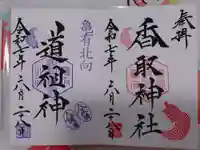 奉拝
香取神社
令和七年二月二十八日
亀有北向
道祖神
令和七年二月二十八日